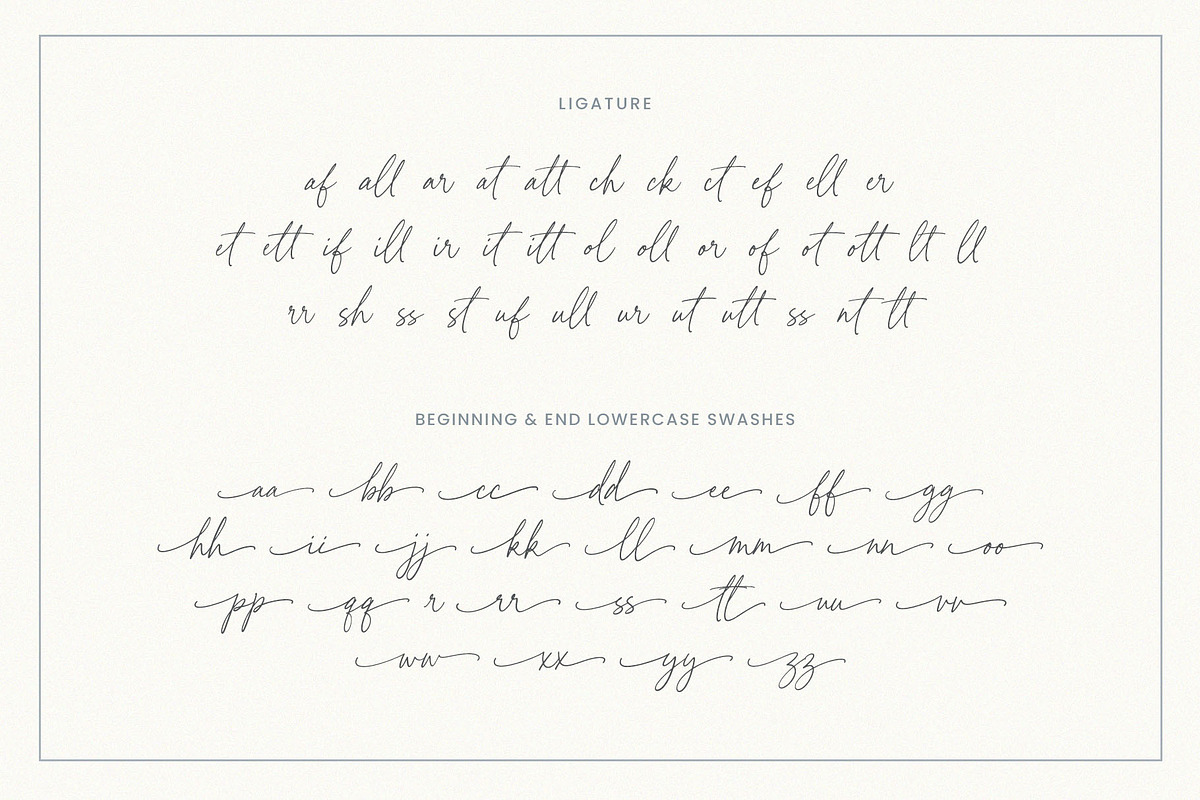 LIGATURE
af all ar at att ch ck ct ef ell er
et ett if ill ir it itt ol oll or of ot ott lt ll
rr sh ss st uf ull ur ut utt ss nt tt
BEGINNING & END LOWERCASE SWASHES
aa bb cc dd ee ff gg
hh ii jj kk ll mm nn oo
pp qq r rr ss tt uu vv
ww xx yy zz